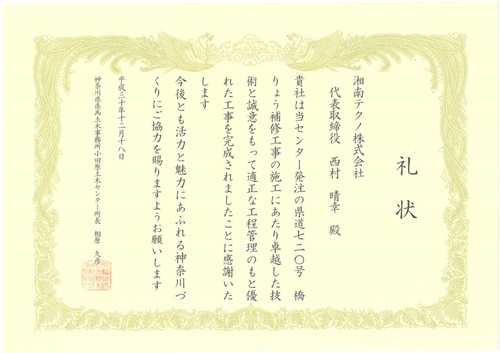 礼状
湘南テクノ株式会社
代表取締役 西村 晴幸 殿
貴社は当センター発注の県道七二〇号 橋
りょう補修工事の施工にあたり卓越した技
術と誠意をもって適正な工程管理のもと優
れた工事を完成されましたことに感謝いた
します
今後とも活力と魅力にあふれる神奈川づ
くりにご協力を賜りますようお願いします
平成三十年十二月十八日
神奈川県県西土木事務所小田原土木センター所長 相原 久彦